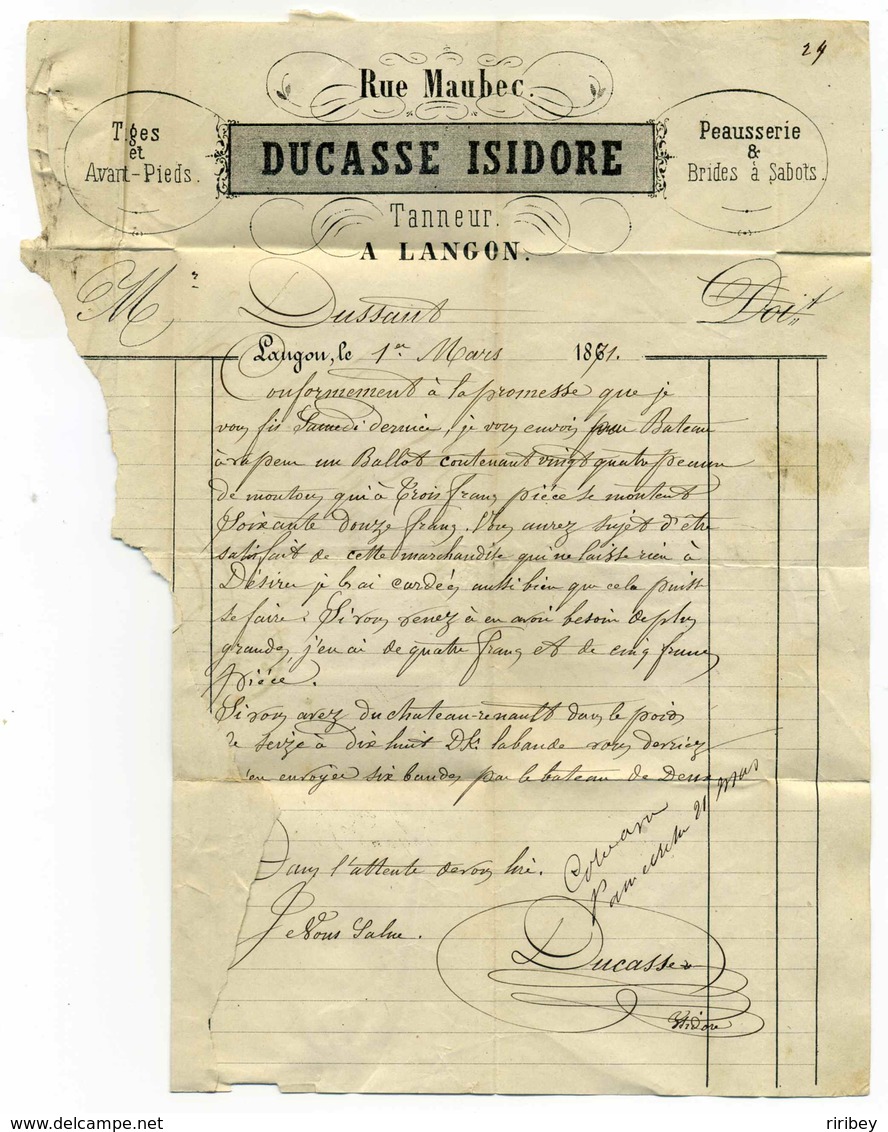 24
Rue Maubec.
Tiges
et
Avant-Pieds.
DUCASSE ISIDORE
Peausserie
&
Brides à Sabots.
Tanneur.
A LANGON.
M.r Dussaut Doit
Langon, le 1er Mars 1871.
Conformement à la promesse que je
vous fis Samedi dernier, je vous envois par Bateau
à vapeur un Ballot contenant vingt quatre peaux
de moutons qui à Trois francs pièce se montent
Soixante douze francs. Vous aurez sujet d'être
satisfait de cette marchandise qui ne laisse rien à
Désirer je les ai cardées aussi bien que cela puisse
se faire. Si vous venez à en avoir besoin de plus
grandes, j'en ai de quatre francs et de cinq francs
pièce.
Si vous avez du chateau-renault dans le poids
de seize à dix huit la bande vous devriez
m'en envoyer six bandes par le bateau de
Dans l'attente de vous lire.
Je Vous Salue.
21 mars
Ducasse
Isidore
riribey